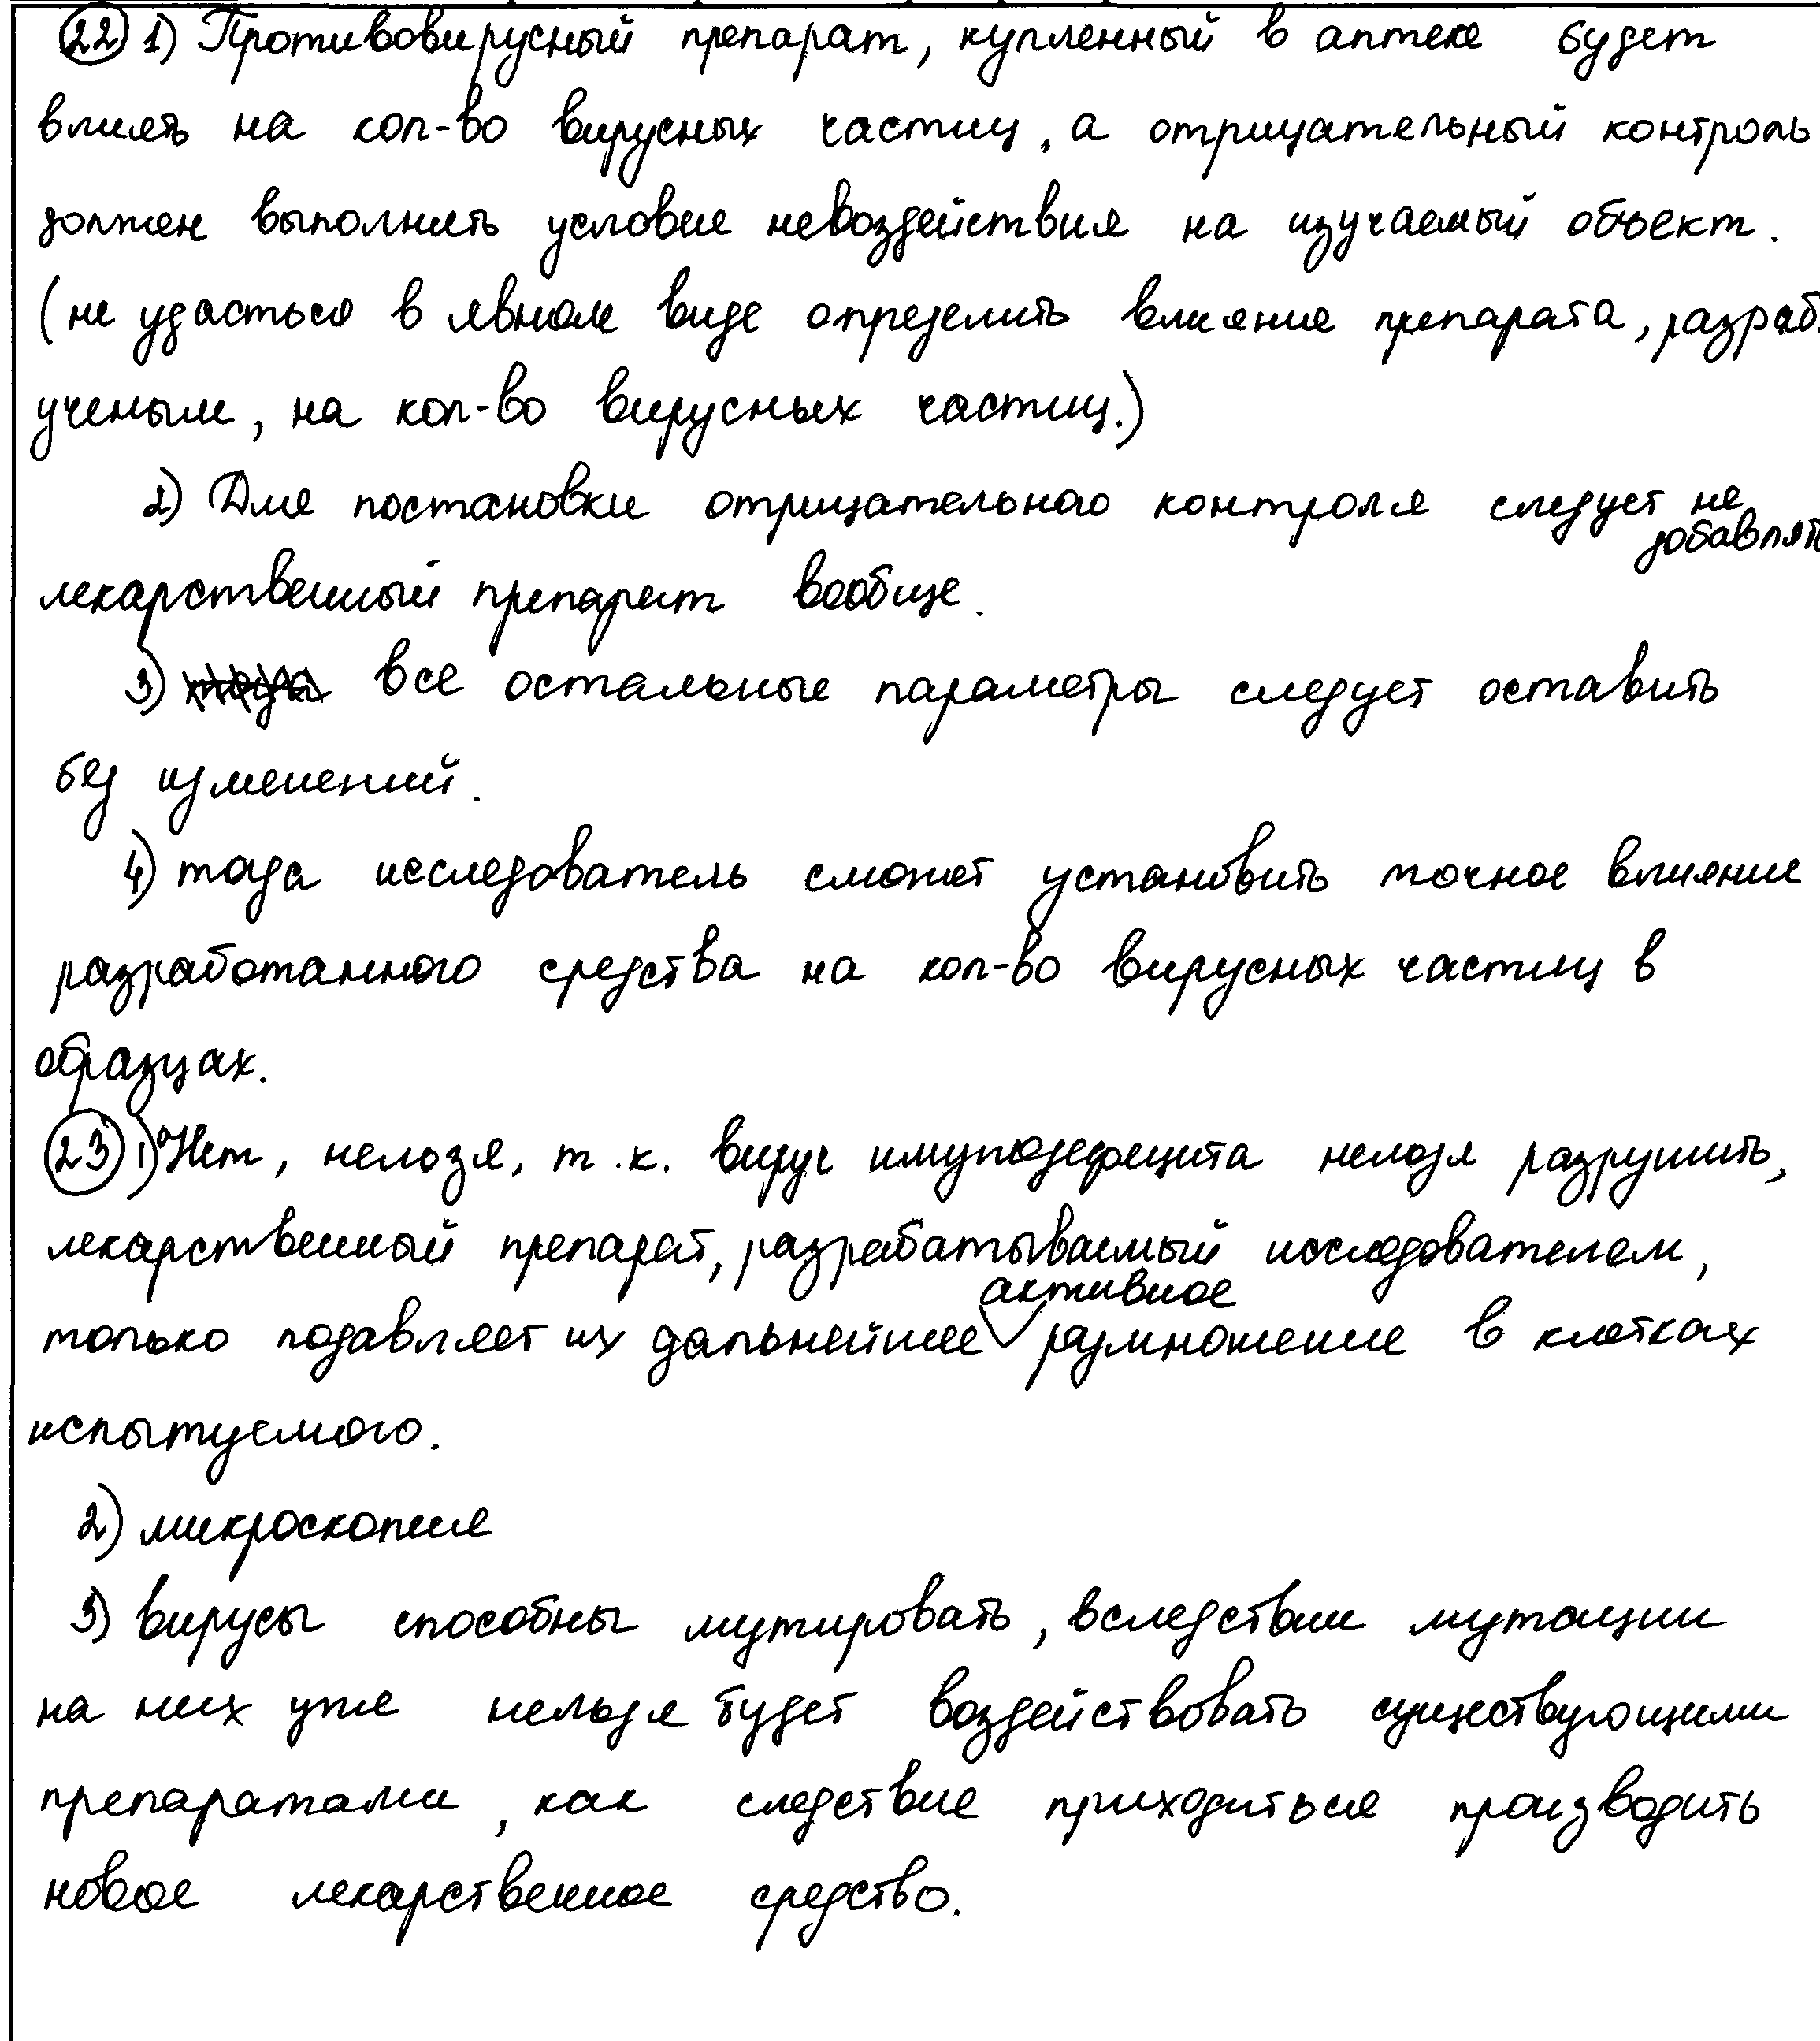 22 1) Противовирусный препарат, купленный в аптеке будет
влиять на кол-во вирусных частиц, а отрицательный контроль
должен выполнять условие невоздействия на изучаемый объект.
(не удасться в явном виде определить влияние препарата, разраб.
ученым, на кол-во вирусных частиц.)
2) Для постановки отрицательного контроля следует не
добавлять
лекарственный препарат вообще.
3) все остальные параметры следует оставить
без изменений.
4) тогда исследователь сможет установить точное влияние
разработанного средства на кол-во вирусных частиц в
образцах.
23 1) Нет, нельзя, т.к. вирус имунодефицита нельзя разрушить,
лекарственный препарат, разрабатываемый исследователем,
активное
только подавляет их дальнейшее размножение в клетках
испытуемого.
2) микроскопия
3) вирусы способны мутировать, вследствии мутации
на них уже нельзя будет воздействовать существующими
препаратами, как следствие приходиться производить
новое лекарственное средство.